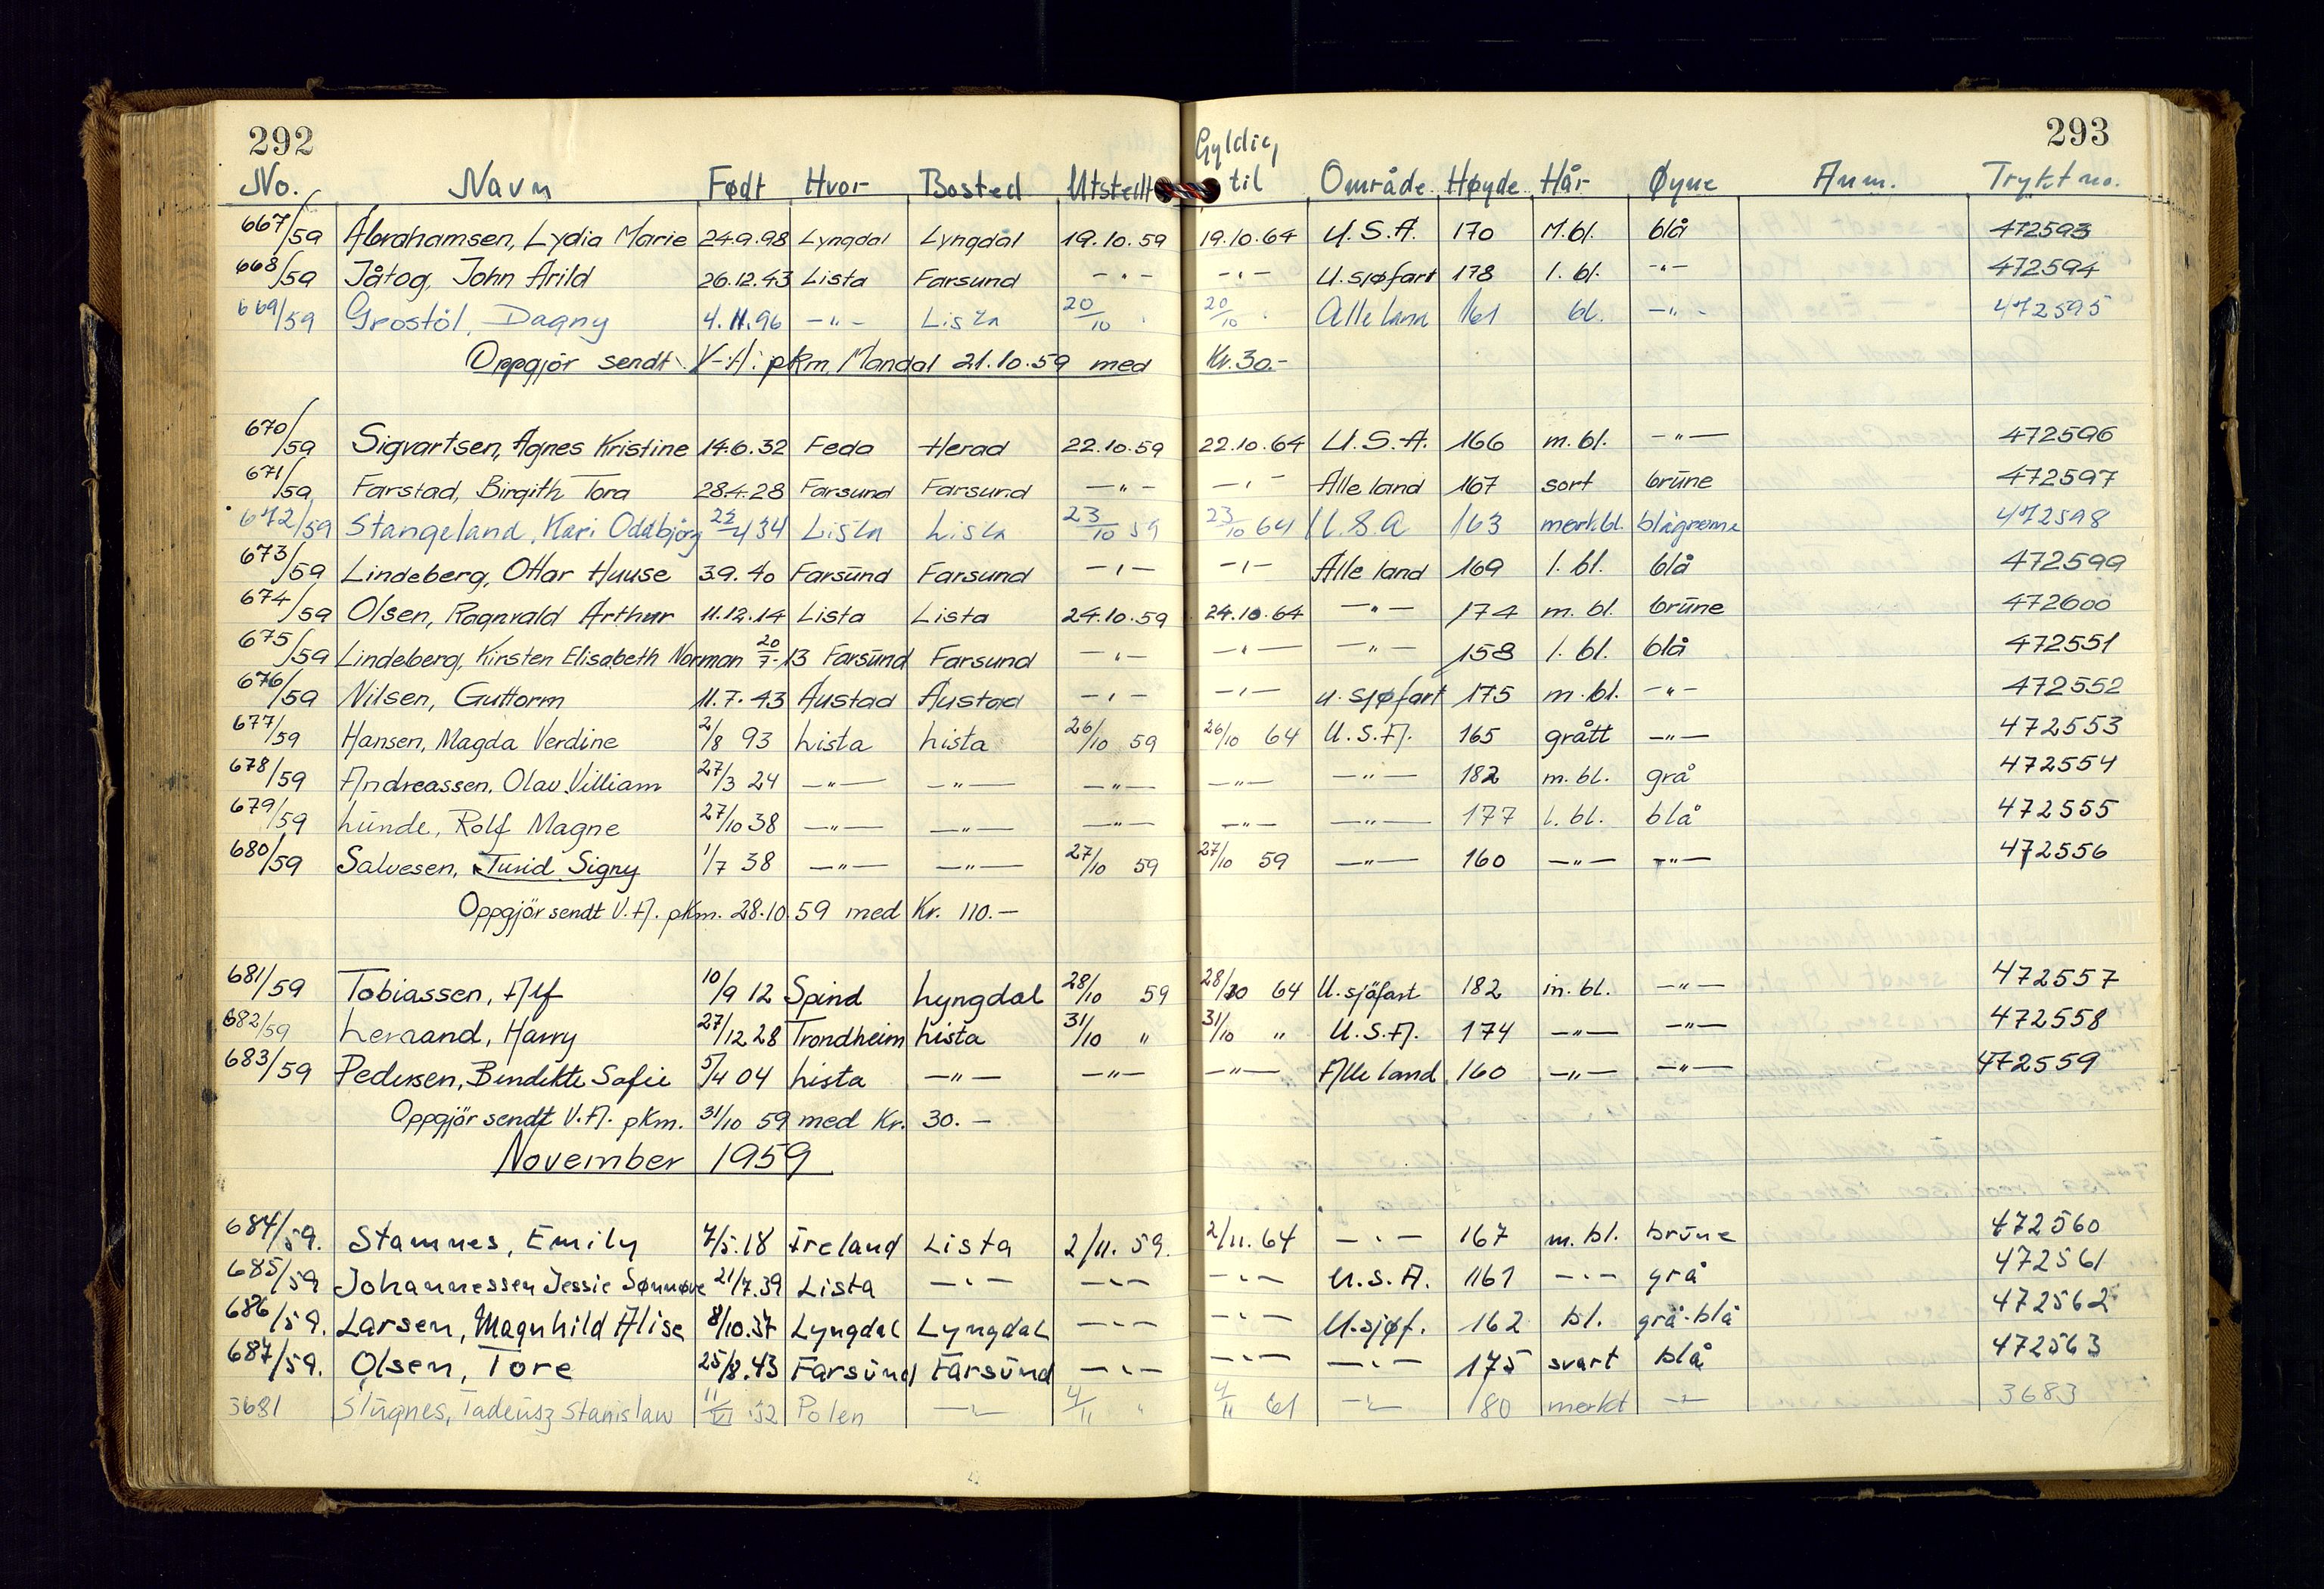 292 293
No. Navn Født Hvor Bosted Utstedt Gyldig til Område Høyde Hår Øyne Anm. Trykt no.
667/59 Abrahamsen, Lydia Marie 24.9.98 Lyngdal Lyngdal 19.10.59 19.10.64 U.S.A. 170 M.bl. blå 472593
668/59 Jåtog, John Arild 26.12.43 Lista Farsund -"- -"- U.sjøfart 178 l. bl. -"- 472594
669/59 Grostöl, Dagny 4.11.96 -"- Lista 20/10 " 20/10 " Alle land 161 bl. -"- 472595
Oppgjör sendt V-A. pkm, Mandal 21.10.59 med Kr. 30.-
670/59 Sigvartsen, Agnes Kristine 14.6.32 Feda Herad 22.10.59 22.10.64 U.S.A. 166 m. bl. -"- 472596
671/59 Farstad, Birgith Tora 28.4.28 Farsund Farsund -"- -"- Alle land 167 sort brune 472597
672/59 Stangeland, Kari Oddbjörg 22/4 34 Lista Lista 23/10 59 23/10 64 U.S.A 163 mørkbl. blågrønne 472598
673/59 Lindeberg, Ottar Huuse 3.9.40 Farsund Farsund -"- -"- Alle land 169 l. bl. blå 472599
674/59 Olsen, Ragnvald Arthur 11.12.14 Lista Lista 24.10.59 24.10.64 -"- 174 m. bl. brune 472600
675/59 Lindeberg, Kirsten Elisabeth Norman 20/7-13 Farsund Farsund -"- -"- -"- 158 l. bl. blå 472551
676/59 Nilsen, Guttorm 11.7.43 Austad Austad -"- -"- u. sjøfart 175 m. bl. -"- 472552
677/59 Hansen, Magda Verdine 2/8 93 Lista Lista 26/10 59 26/10 64 U.S.A. 165 grått -"- 472553
678/59 Andreassen, Olav Villiam 27/3 24 -"- -"- -"- -"- -"- 182 m. bl. grå 472554
679/59 Lunde, Rolf Magne 27/10 38 -"- -"- -"- -"- -"- 177 l. bl. blå 472555
680/59 Salvesen, Turid Signy 1/7 38 -"- -"- 27/10 59 27/10 59 -"- 160 -"- -"- 472556
Oppgjör sendt V.A. pkm. 28.10.59 med Kr. 110.-
681/59 Tobiassen, Alf 10/9 12 Spind Lyngdal 28/10 59 28/10 64 U.sjöfart 182 m. bl. -"- 472557
682/59 Harry 27/12 28 Trondheim Lista 31/10 " 31/10 " U.S.A. 174 -"- -"- 472558
683/59 Pedersen, Bendikte Sofie 5/4 04 Lista -"- -"- -"- Alle land 160 -"- -"- 472559
Oppgjör sendt V.A. pkm. 31/10 59 med Kr. 30.-
November 1959
684/59. Stamnes, Emily 7/5.18 Ireland Lista 2/11. 59. 2/11. 64 -"- 167 m. bl. brune 472560
685/59 Johannessen Jessie Sønnøve 21/7.39 Lista -"- -"- -"- U.S.A. 161 -"- grå 472561
686/59. Larsen, Magnhild Alise 8/10.37 Lyngdal Lyngdal -"- -"- U.sjøf. 162 bl. grå-blå 472562
687/59. Olsen, Tore 25/8.43 Farsund Farsund -"- -"- -"- 175 svart blå 472563
3681 Tadeusz Stanislaw 11/VI 32 Polen -"- 4/11 " 4/11 61 -"- 180 mørkt -"- 3683